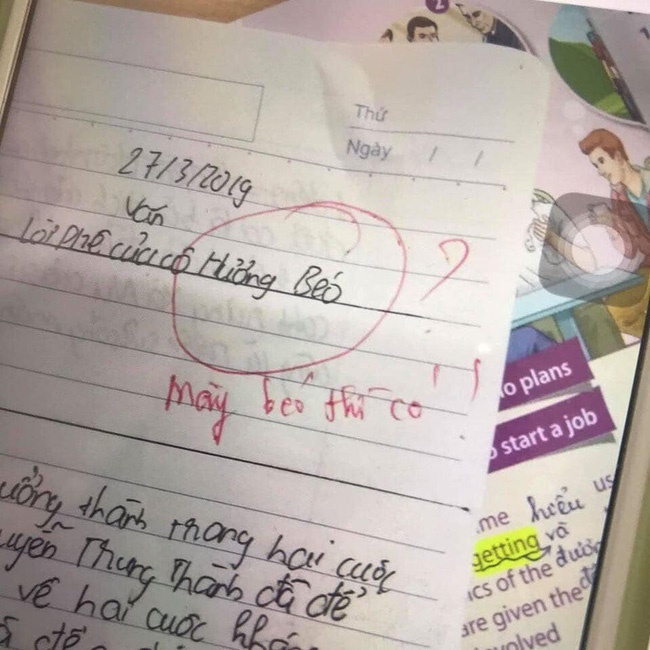 2
Thứ
Ngày / /
27/3/2019
Văn
Lời phê của cô Hưởng Béo
?
Mày béo thì có ! !
o plans
start a job
ưởng thành trong hai cuộc
uyễn Trung Thành đã để
về hai cuộc
me hiểu us
getting và
ics of the được
are given the
volved